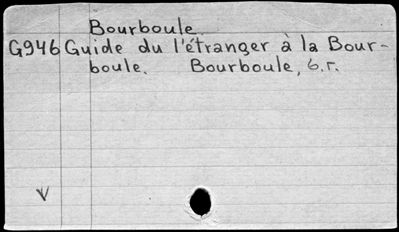 Bourboule.
G946 Guide du l'étranger à la Bour-
boule. Bourboule, б.г.
V